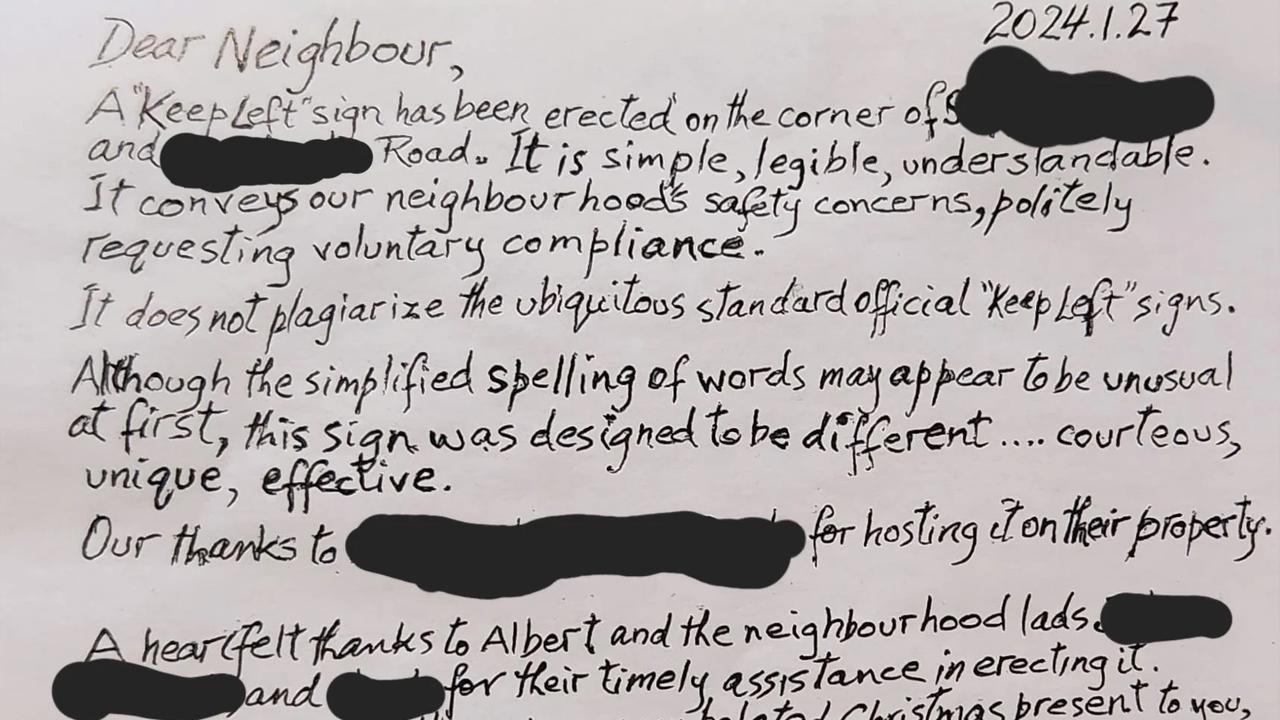 2024.1.27
Dear Neighbour,
A "Keep Left" sign has been erected on the corner of S
and Road. It is simple, legible, understandable.
It conveys our neighbourhood's safety concerns, politely
requesting voluntary compliance.
It does not plagiarize the ubiquitous standard official "Keep Left" signs.
Although the simplified spelling of words may appear to be unusual
at first, this sign was designed to be different .... courteous,
unique, effective.
Our thanks to for hosting it on their property.
A heartfelt thanks to Albert and the neighbourhood lads.
and for their timely assistance in erecting it.
belated Christmas present to you,